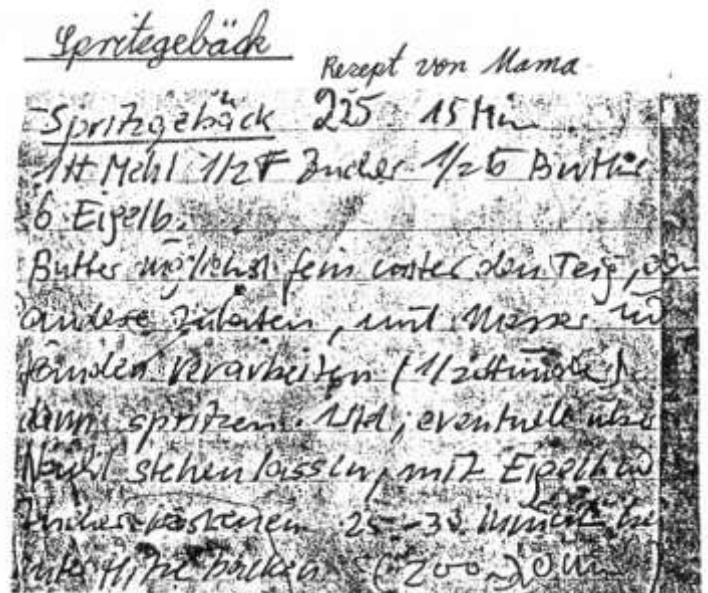 Spritzgebäck
Rezept von Mama
Spritzgebäck 225 15 Min
1 ℔ Mehl 1/2 ℔ Zucker 1/2 ℔ Butter
6 Eigelb.
Butter möglichst fein unter den Teig,
andere Zutaten, mit Messer
Händen verarbeiten (1/2 Stunde)
dann spritzen. 1 Std, eventuell über
Nacht stehen lassen, mit Eigelb
Zucker 25-30
Hitze backen (200